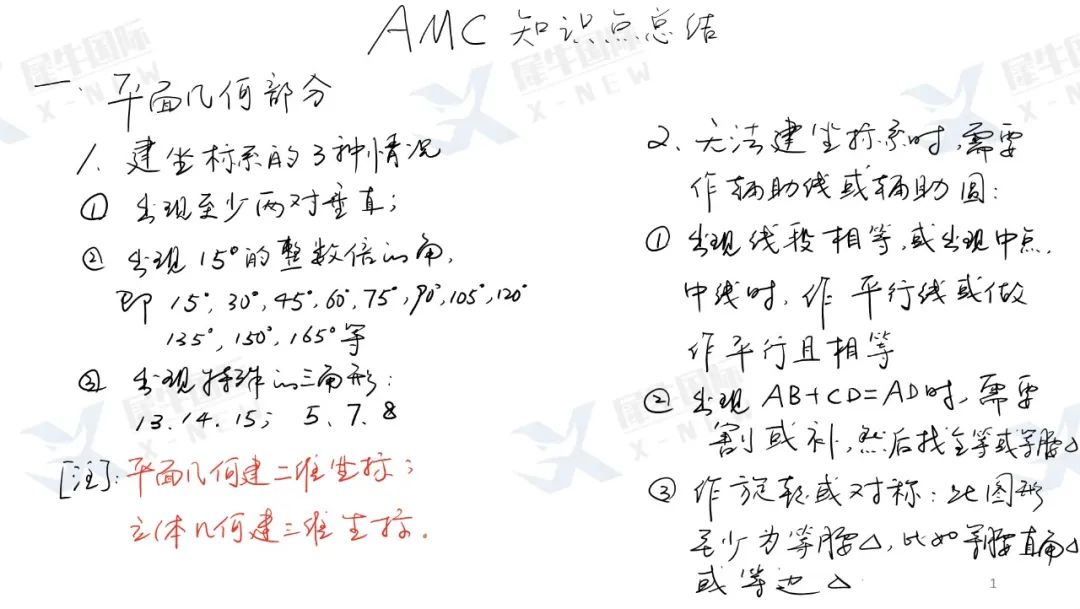 AMC 知识点总结
一、平面几何部分
1、建坐标系的3种情况
① 出现至少两对垂直；
② 出现15°的整数倍的角，
即 15°,30°,45°,60°,75°,90°,105°,120°
135°,150°,165°等
③ 出现特殊的三角形：
13、14、15； 5、7、8
[注]：平面几何建二维坐标；
立体几何建三维坐标。
2、无法建坐标系时，需要
作辅助线或辅助圆：
① 出现线段相等，或出现中点、
中线时，作 平行线或做
作平行且相等
② 出现 AB+CD=AD时，需要
割或补，然后找全等或等腰△
③ 作旋转或对称：此图形
至少为等腰△，比如等腰直角△
或等边△
1
犀牛国际
X-NEW
犀牛国际
X-NEW
犀牛国际
X-NEW
犀牛国际
X-NEW